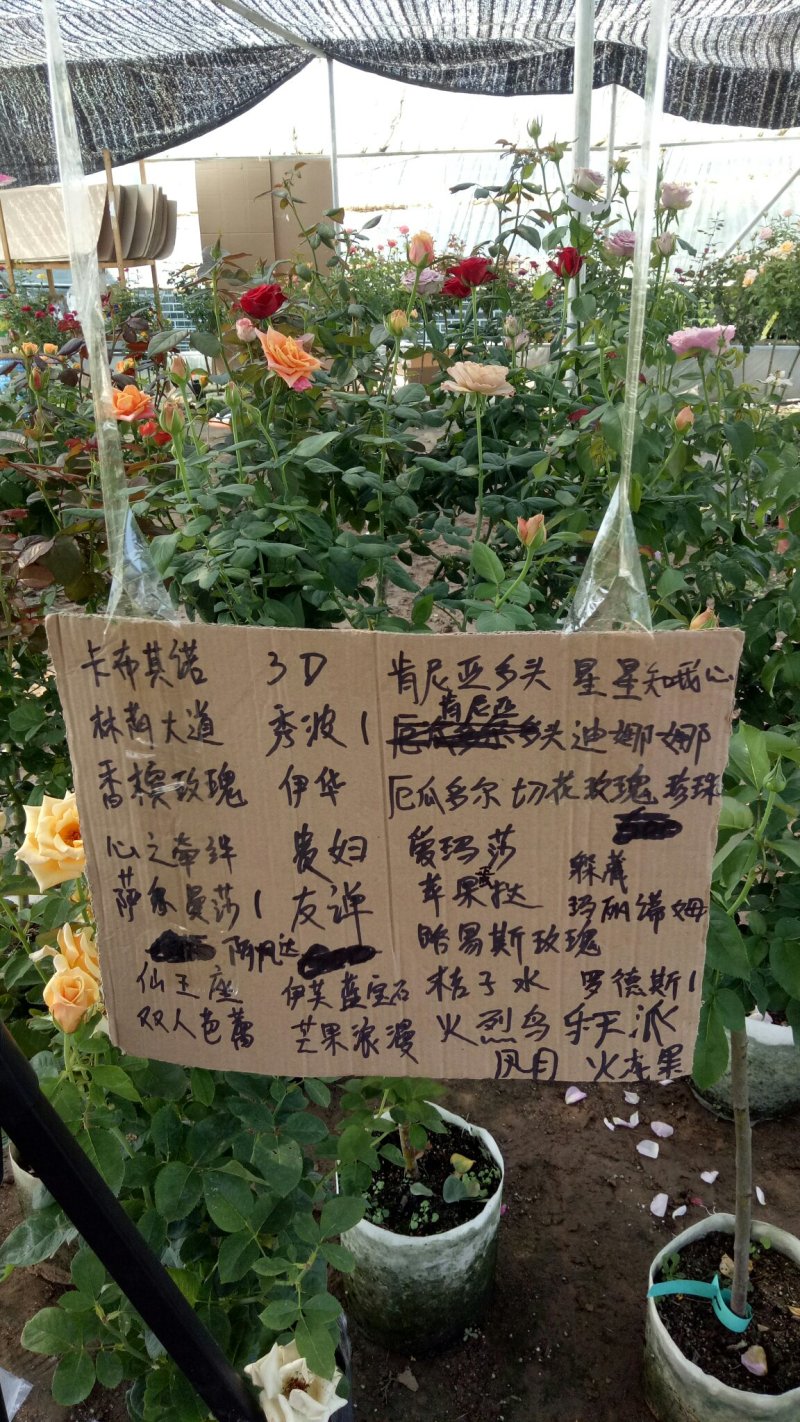 卡布其诺 3D 肯尼亚多头 星星知我心
林荫大道 秀波1 肯尼亚 头 迪娜娜
香槟玫瑰 伊华 厄瓜多尔切花玫瑰 珍珠
心之牵绊 贵妇 爱玛莎 躲藏
萨尔曼莎1 友谊 苹果 挞 玛丽诺姆
阿凡达 哈易斯玫瑰
仙王座 伊芙蓝宝石 桔子水 罗德斯1
双人芭蕾 芒果浪漫 火烈鸟 乐天派
凤月 火龙果